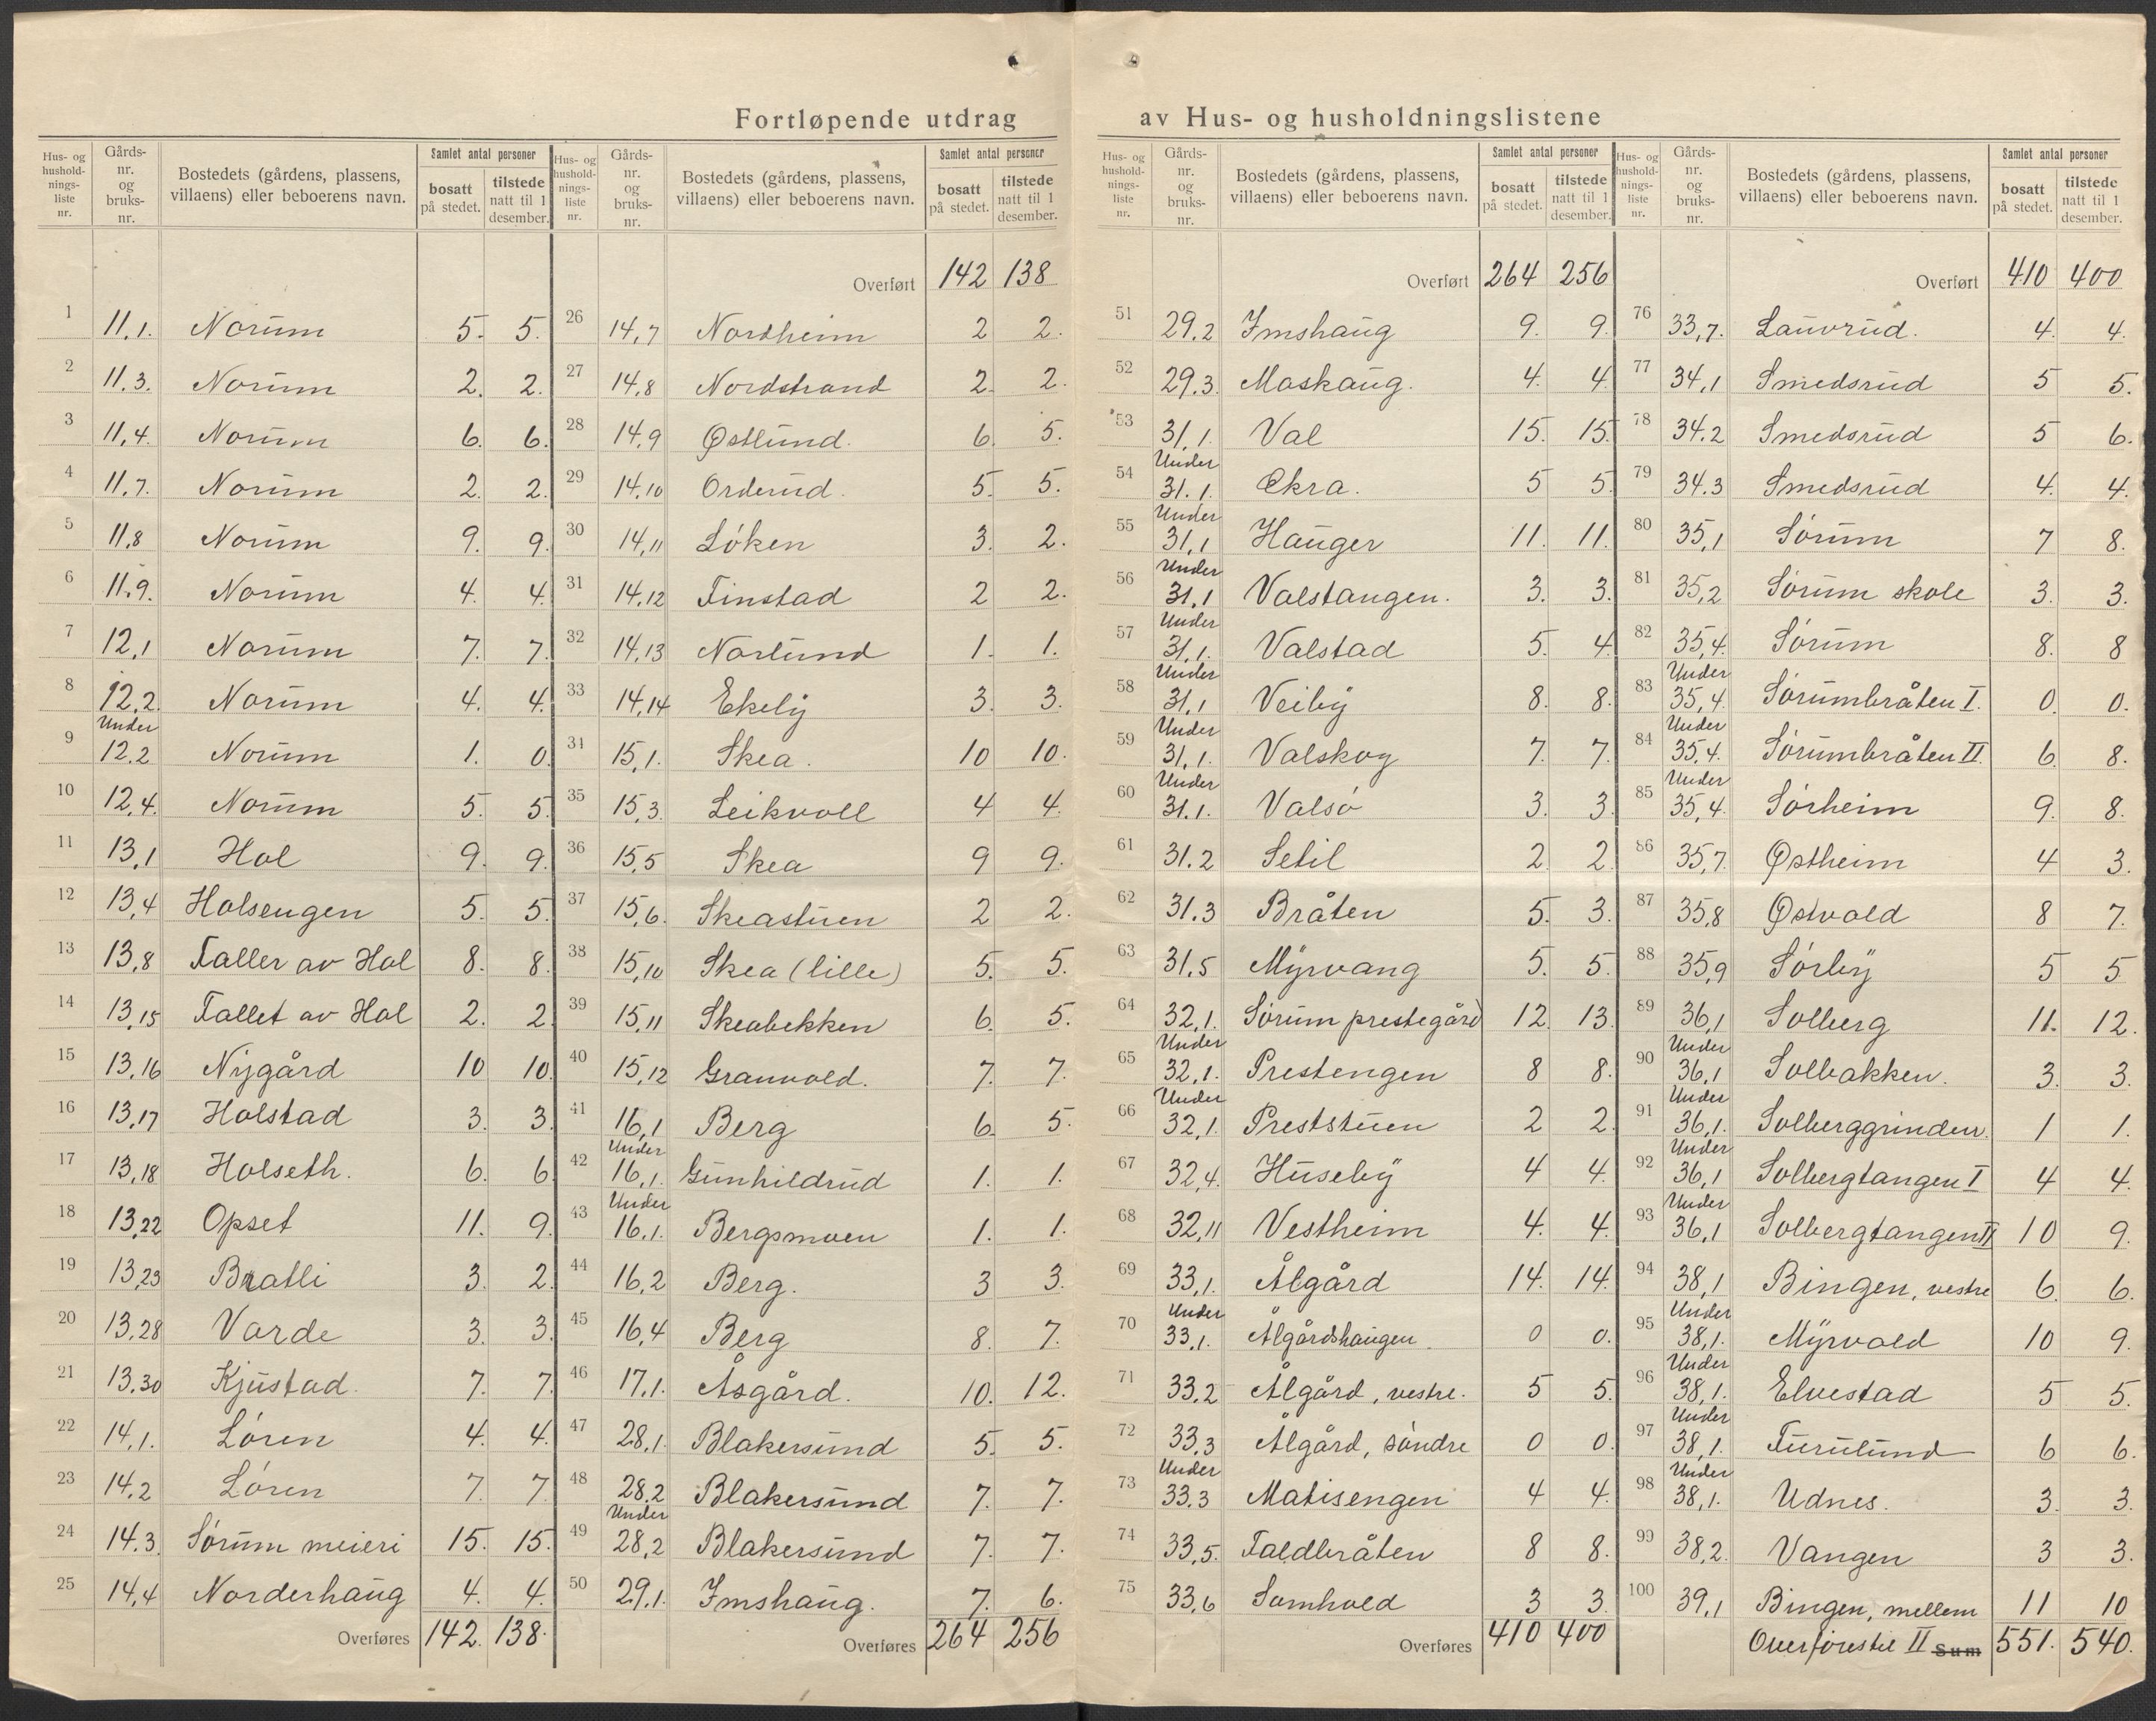 Fortløpende utdrag av Hus- og husholdningslistene
Hus- og hushold-nings-liste nr. | Gårds-nr. og bruks-nr. | Bostedets (gårdens, plassens, villaens) eller beboerens navn. | Samlet antal personer | bosatt på stedet. | tilstede natt til 1 desember.
1 11,1. Norum 5. 5.
2 11.3. Norum 2. 2.
3 11,4. Norum 6. 6.
4 11.7. Norum 2. 2.
5 11,8 Norum 9. 9.
6 11.9. Norum 4. 4.
7 12,1 Norum 7. 7.
8 12,2. Norum 4. 4.
9 Under 12.2 Norum 1. 0.
10 12,4. Norum 5. 5.
11 13,1 Hol 9. 9.
12 13,4 Holsengen 5. 5.
13 13,8 Faller av Hol 8. 8.
14 13,15 Fallet av Hol 2. 2.
15 13,16 Nygård 10 10.
16 13,17 Holstad 3. 3.
17 13,18 Holseth. 6. 6.
18 13,22 Opset 11. 9.
19 13,23 Bratli 3. 2.
20 13,28 Varde 3. 3.
21 13.30 Kjustad. 7. 7.
22 14,1. Lóren 4. 4.
23 14.2 Lóren 7. 7.
24 14.3. Sórum meieri 15. 15.
25 14,4 Norderhaug 4. 4.
Overføres 142. 138.
Hus- og hushold-nings-liste nr. | Gårds-nr. og bruks-nr. | Bostedets (gårdens, plassens, villaens) eller beboerens navn. | Samlet antal personer | bosatt på stedet. | tilstede natt til 1 desember.
Overført 142 138
26 14,7 Nordheim 2 2.
27 14,8 Nordstrand 2. 2.
28 14,9 Østlund. 6. 5.
29 14,10 Orderud. 5. 5.
30 14,11 Lóken 3. 2.
31 14,12 Finstad 2 2.
32 14,13 Norlund 1. 1.
33 14,14 Ekely 3. 3.
34 15,1. Skea. 10 10.
35 15,3. Leikvoll 4 4.
36 15,5 Skea 9 9.
37 15,6. Skeastuen 2. 2.
38 15,10 Skea (lille) 5. 5.
39 15,11 Skeabekken 6. 5.
40 15,12 Granvold. 7. 7.
41 16,1 Berg 6. 5.
42 Under 16,1. Gunhildrud 1. 1.
43 Under 16.1. Bergsmoen 1. 1.
44 16,2 Berg. 3 3.
45 16,4 Berg 8. 7.
46 17,1. Åsgård. 10. 12.
47 28,1. Blakersund 5. 5.
48 28.2 Blakersund 7. 7.
49 Under 28,2 Blakersund 7. 7.
50 29,1. Imshaug. 7. 6.
Overføres 264 256
Hus- og hushold-nings-liste nr. | Gårds-nr. og bruks-nr. | Bostedets (gårdens, plassens, villaens) eller beboerens navn. | Samlet antal personer | bosatt på stedet. | tilstede natt til 1 desember.
Overført 264 256
51 29.2 Imshaug 9. 9.
52 29.3. Moshaug. 4. 4.
53 31,1. Val 15. 15.
54 Under 31.1. Ekra. 5 5.
55 Under 31,1 Hauger 11. 11.
56 Under 31,1 Valstangen. 3. 3.
57 Under 31,1. Valstad 5. 4.
58 Under 31,1 Veiby 8. 8.
59 Under 31,1. Valskog 7. 7.
60 Under 31.1. Valsó 3. 3.
61 31.2 Setil 2 2.
62 31.3 Bråten 5. 3.
63 31.5 Myrvang 5. 5.
64 32,1. Sórum prestegård 12. 13.
65 Under 32,1. Prestengen 8 8.
66 Under 32,1. Preststuen 2 2.
67 32,4. Huseby 4 4.
68 32,11 Vestheim 4. 4.
69 33,1. Ålgård 14. 14.
70 Under 33,1. Ålgårdshaugen. 0 0.
71 33.2 Ålgård, vestre. 5 5.
72 33.3 Ålgård, sóndre 0 0.
73 Under 33.3 Matisengen 4 4.
74 33,5. Faldbråten 8 8.
75 33,6 Somhold 3 3.
Overføres 410 400
Hus- og hushold-nings-liste nr. | Gårds-nr. og bruks-nr. | Bostedets (gårdens, plassens, villaens) eller beboerens navn. | Samlet antal personer | bosatt på stedet. | tilstede natt til 1 desember.
Overført 410 400
76 33,7. Lauvrud. 4. 4.
77 34,1 Smedsrud 5 5.
78 34.2 Smedsrud 5 6.
79 34.3 Smedsrud 4. 4.
80 35,1 Sórum 7 8.
81 35,2 Sórum skole 3. 3.
82 35,4. Sórum 8. 8
83 Under 35,4. Sórumbråten I. 0. 0.
84 Under 35,4. Sórumbråten II. 6. 8.
85 Under 35,4. Sórheim 9. 8.
86 35,7. Østheim 4 3.
87 35,8 Østvold 8 7.
88 35,9 Sórby 5 5
89 36,1 Solberg 11. 12.
90 Under 36,1 Solbakken. 3. 3.
91 Under 36,1. Solberggrinden. 1 1.
92 Under 36,1 Solbergtangen I 4 4.
93 Under 36,1 Solbergtangen II 10 9.
94 38,1 Bingen, vestre 6. 6.
95 Under 38,1. Myrvold 10 9.
96 Under 38,1. Elvestad 5 5.
97 Under 38,1. Furulund 6 6.
98 Under 38,1. Udnes. 3. 3.
99 38,2. Vangen 3 3.
100 39,1 Bingen, mellem 11 10
Overføres til II Sum 551. 540.